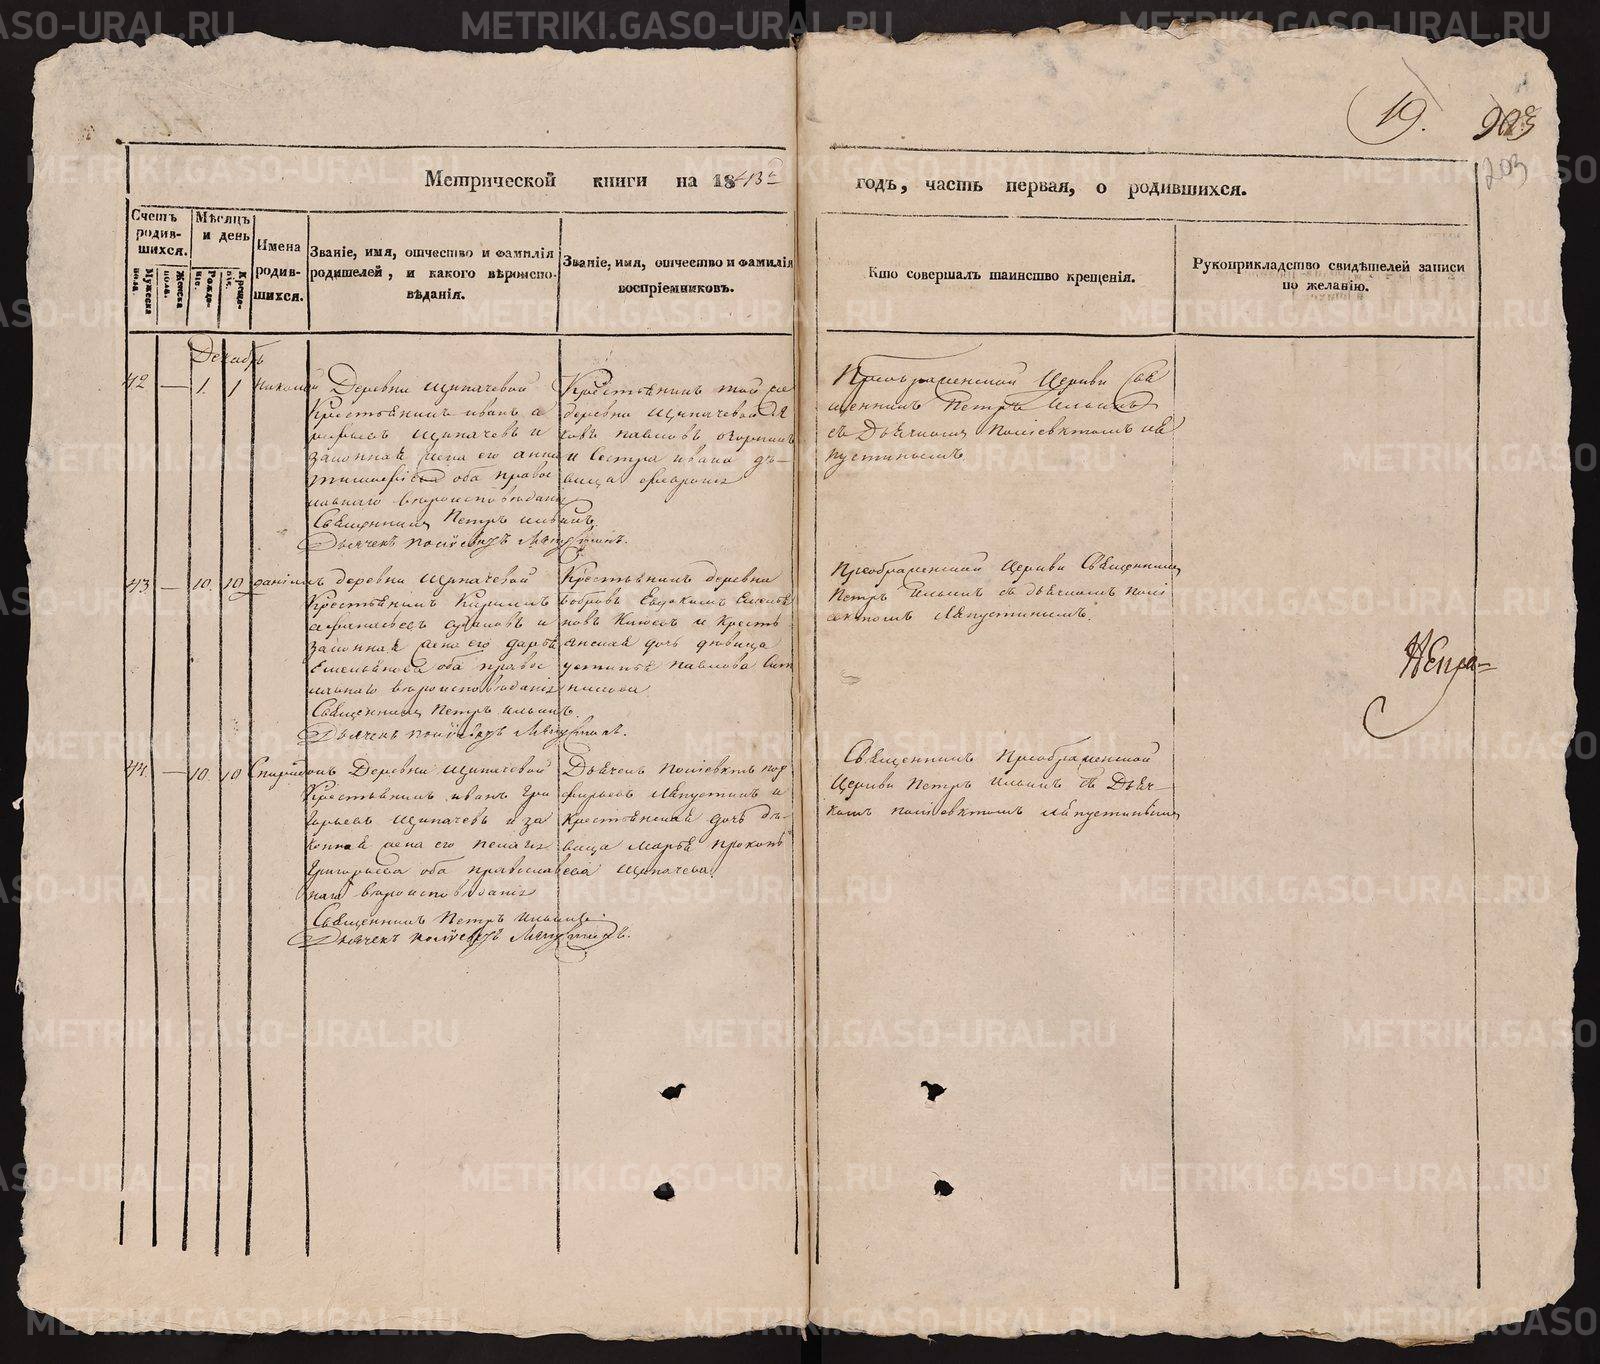 19.
203
Метрической книги на 1843е
годъ, часть первая, о родившихся.
Счетъ родив-шихся.
Мужеска пола.
Женска пола.
Мѣсяцъ и день
Рожде-ніе.
Креще-ніе.
Имена родив-шихся.
Званіе, имя, отчество и фамилія родителей, и какого вѣроиспо-вѣданія.
Званіе, имя, отчество и фамилія воспріемниковъ.
Кто совершалъ таинство крещенія.
Рукоприкладство свидѣтелей записи по желанію.
Декабрь
42 — 1. 1 Николай
Деревни Щипачевой
Крестьянинъ иванъ
Щипачевъ и
законная жена его анна
оба право
славнаго вѣроисповѣданія
Священникъ Петръ ильинъ
Дьячекъ полиевктъ Ляпустинъ.
Крестьянинъ той же
деревни Щипачевой
павловъ
и Сестра ивана дѣ-
вица
Преображенской Церкви Свя
щенникъ Петръ Ильинъ
съ Дьячкомъ полиевктомъ ля
пустинымъ
43 — 10. 10 даніилъ
деревни Щипачевой
Крестьянинъ Кирилъ
афанасьевъ и
законная жена его дарья
Емельянова оба право
славнаго вѣроисповѣданія
Священникъ Петръ ильинъ.
Дьячекъ полиевктъ Ляпустинъ.
Крестьянинъ деревни
Бобровъ Евдокимъ
и Кресть
янская дочь дѣвица
устинья павлова
Преображенской Церкви Священникъ
Петръ Ильинъ съ дьячкомъ полі
евктомъ Ляпустинымъ.
Непра=
44. — 10 10 Спиридонъ
Деревни Щипачевой
Крестьянинъ иванъ Гри
горьевъ Щипачевъ и за
конная жена его пелагия
Григорьева оба православ
наго вѣроисповѣданія
Священникъ Петръ Ильинъ.
Дьячекъ полиевктъ Ляпустинъ.
Дьячекъ полиевктъ пор
фирьевъ Ляпустинъ и
Крестьянская дочь дѣ-
вица Марья прокопь
ева Щипачева.
Священникъ Преображенской
Церкви Петръ Ильинъ съ Дьяч-
комъ полиевктомъ ляпустинымъ
METRIKI.GASO-URAL.RU